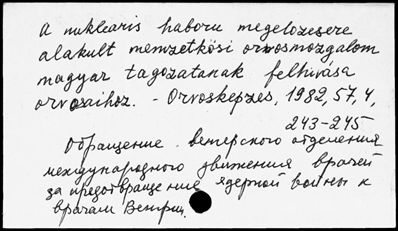 A nukleáris háboru megelőzésére
alakult nemzetközi orvosmozgalom
magyar tagozatának felhivása
orvosaihoz. - Orvosképzés, 1982, 57, 4,
243-245
Обращение венгерского отделения
международного движения врачей
за предотвращение ядерной войны к
врачам Венгрии.